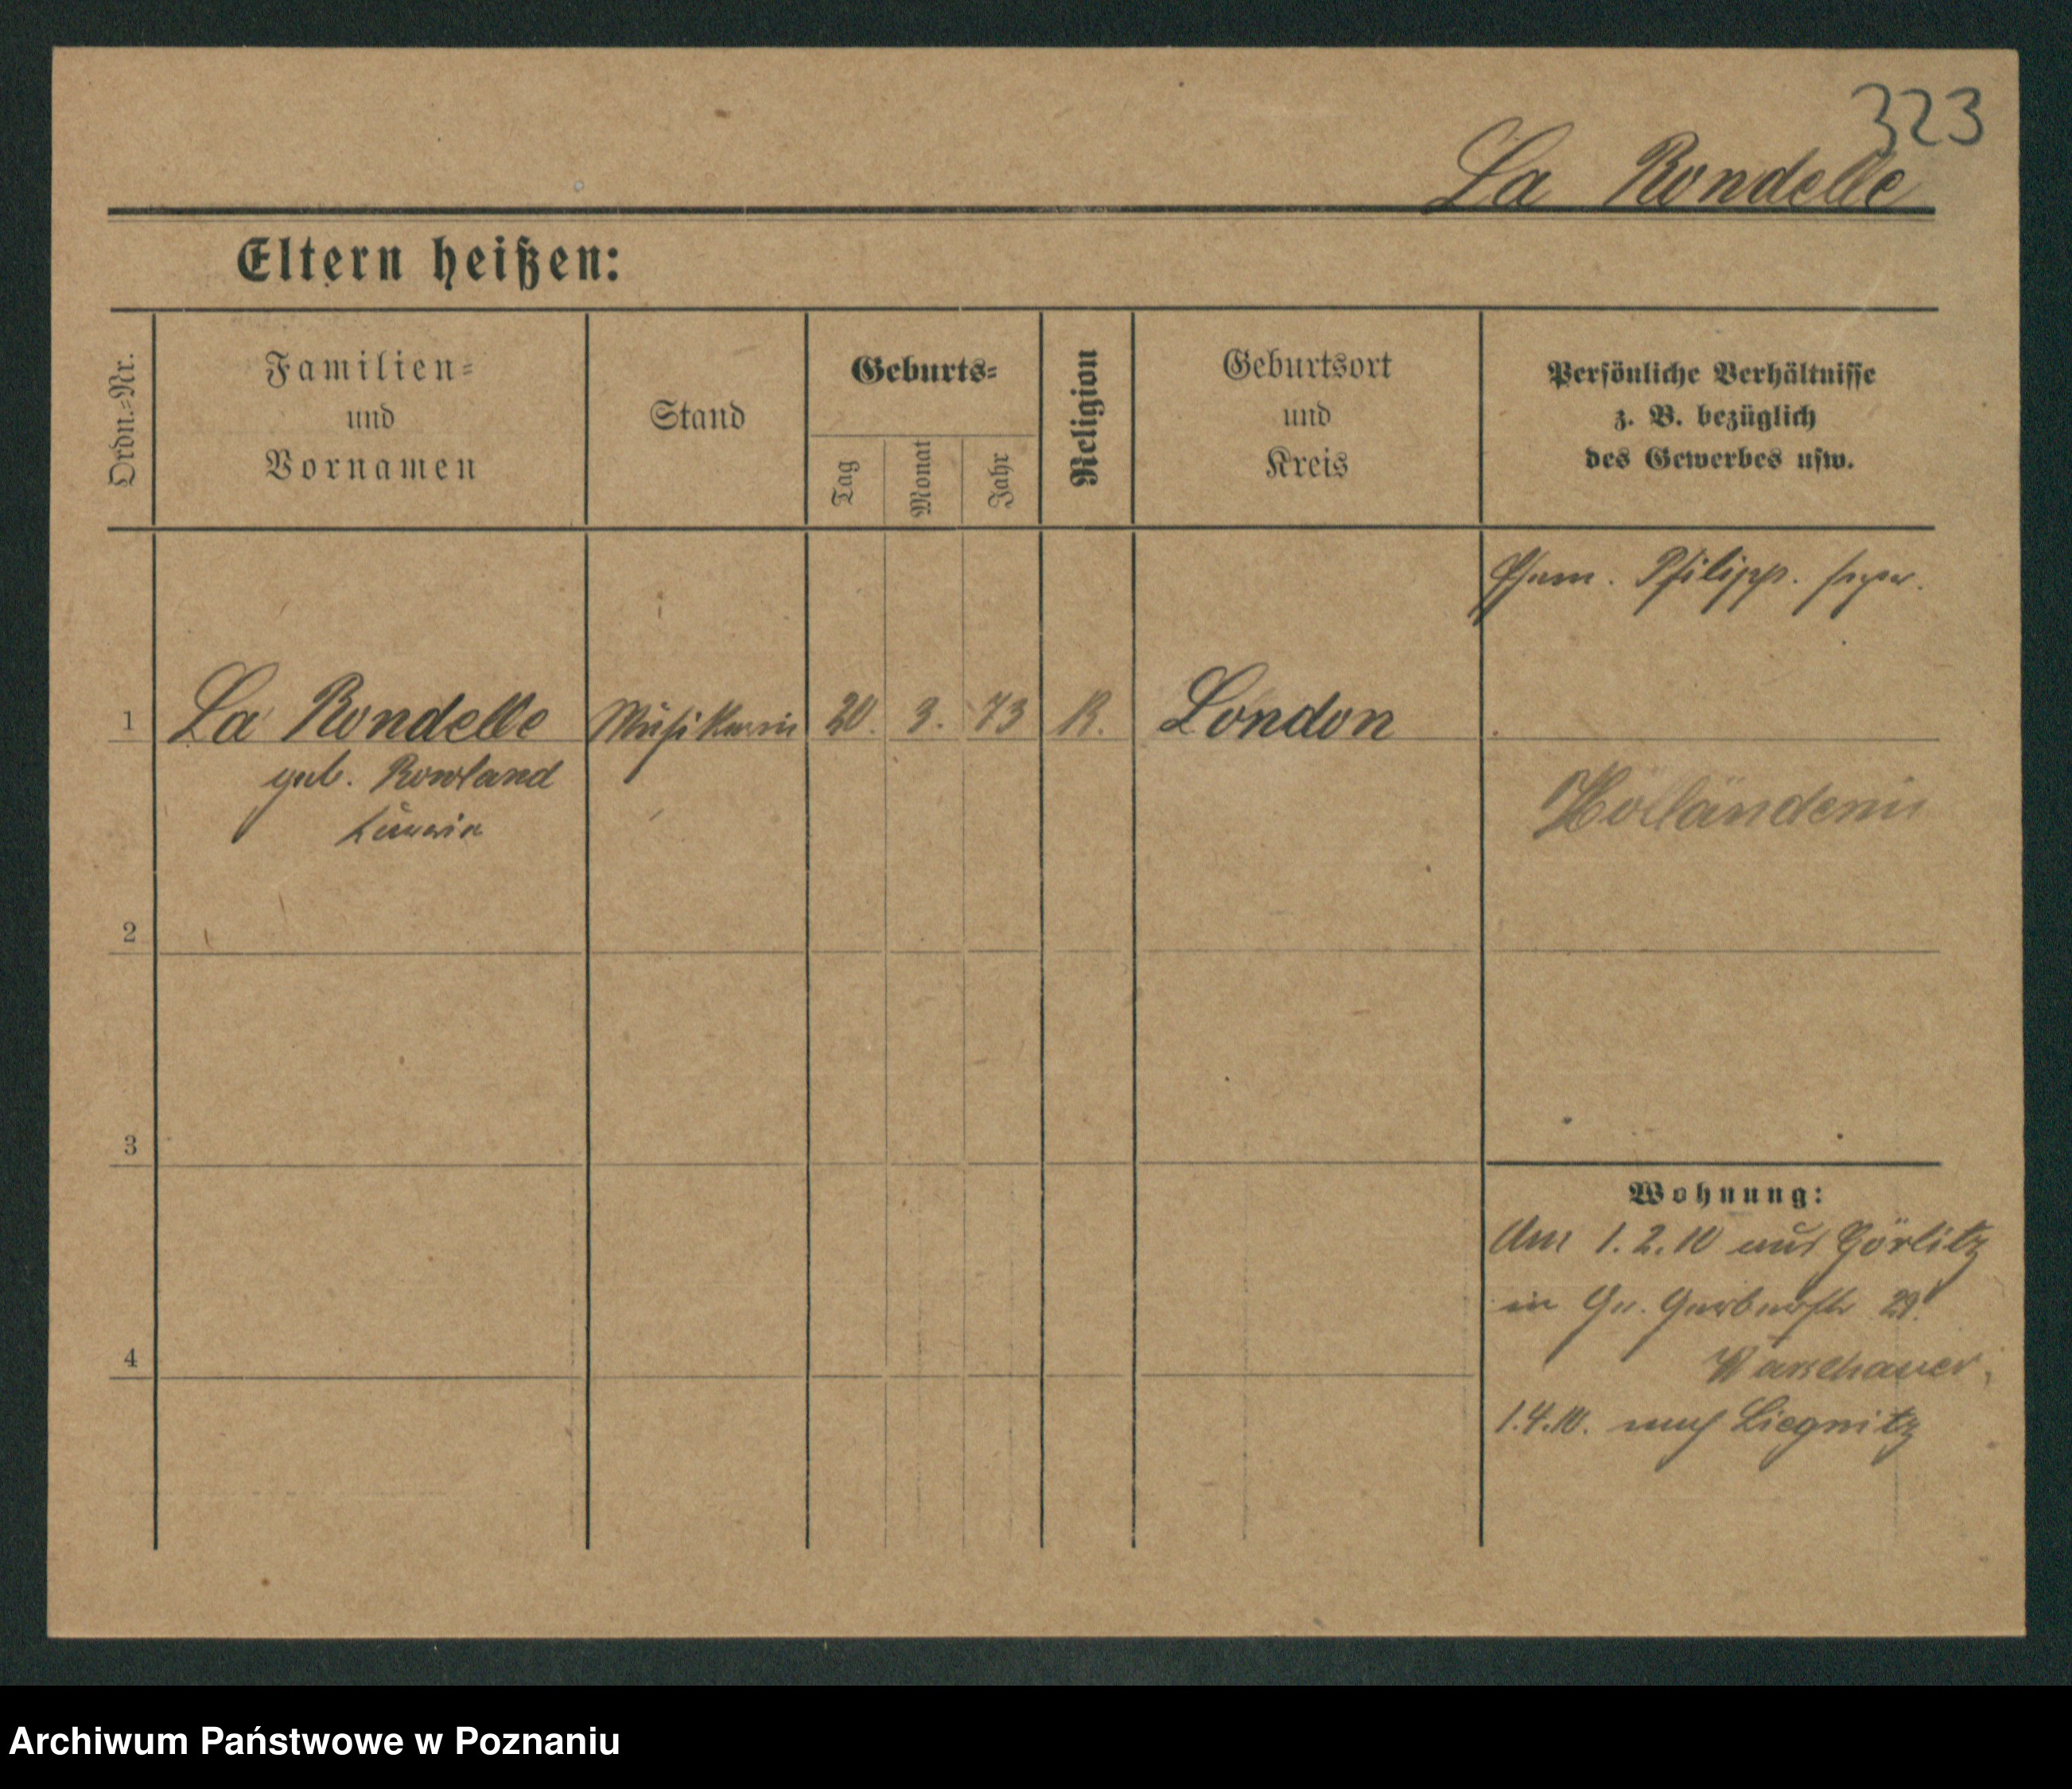 323
La Rondelle
Eltern heißen:
Ordn.=Nr.
Familien=
und
Vornamen
Stand
Geburts=
Tag
Monat
Jahr
Religion
Geburtsort
und
Kreis
Persönliche Verhältnisse
z. B. bezüglich
des Gewerbes usw.
Ehem. Philipp.
1 La Rondelle Musikerin 20. 3. 73 R. London
geb. Rowland
Holländerin
2
3
Wohnung:
Am 1.2.10 aus Görlitz
in Gr. Gerberstr 29.
4
Warschauer
1.4.10. nach Liegnitz
Archiwum Państwowe w Poznaniu